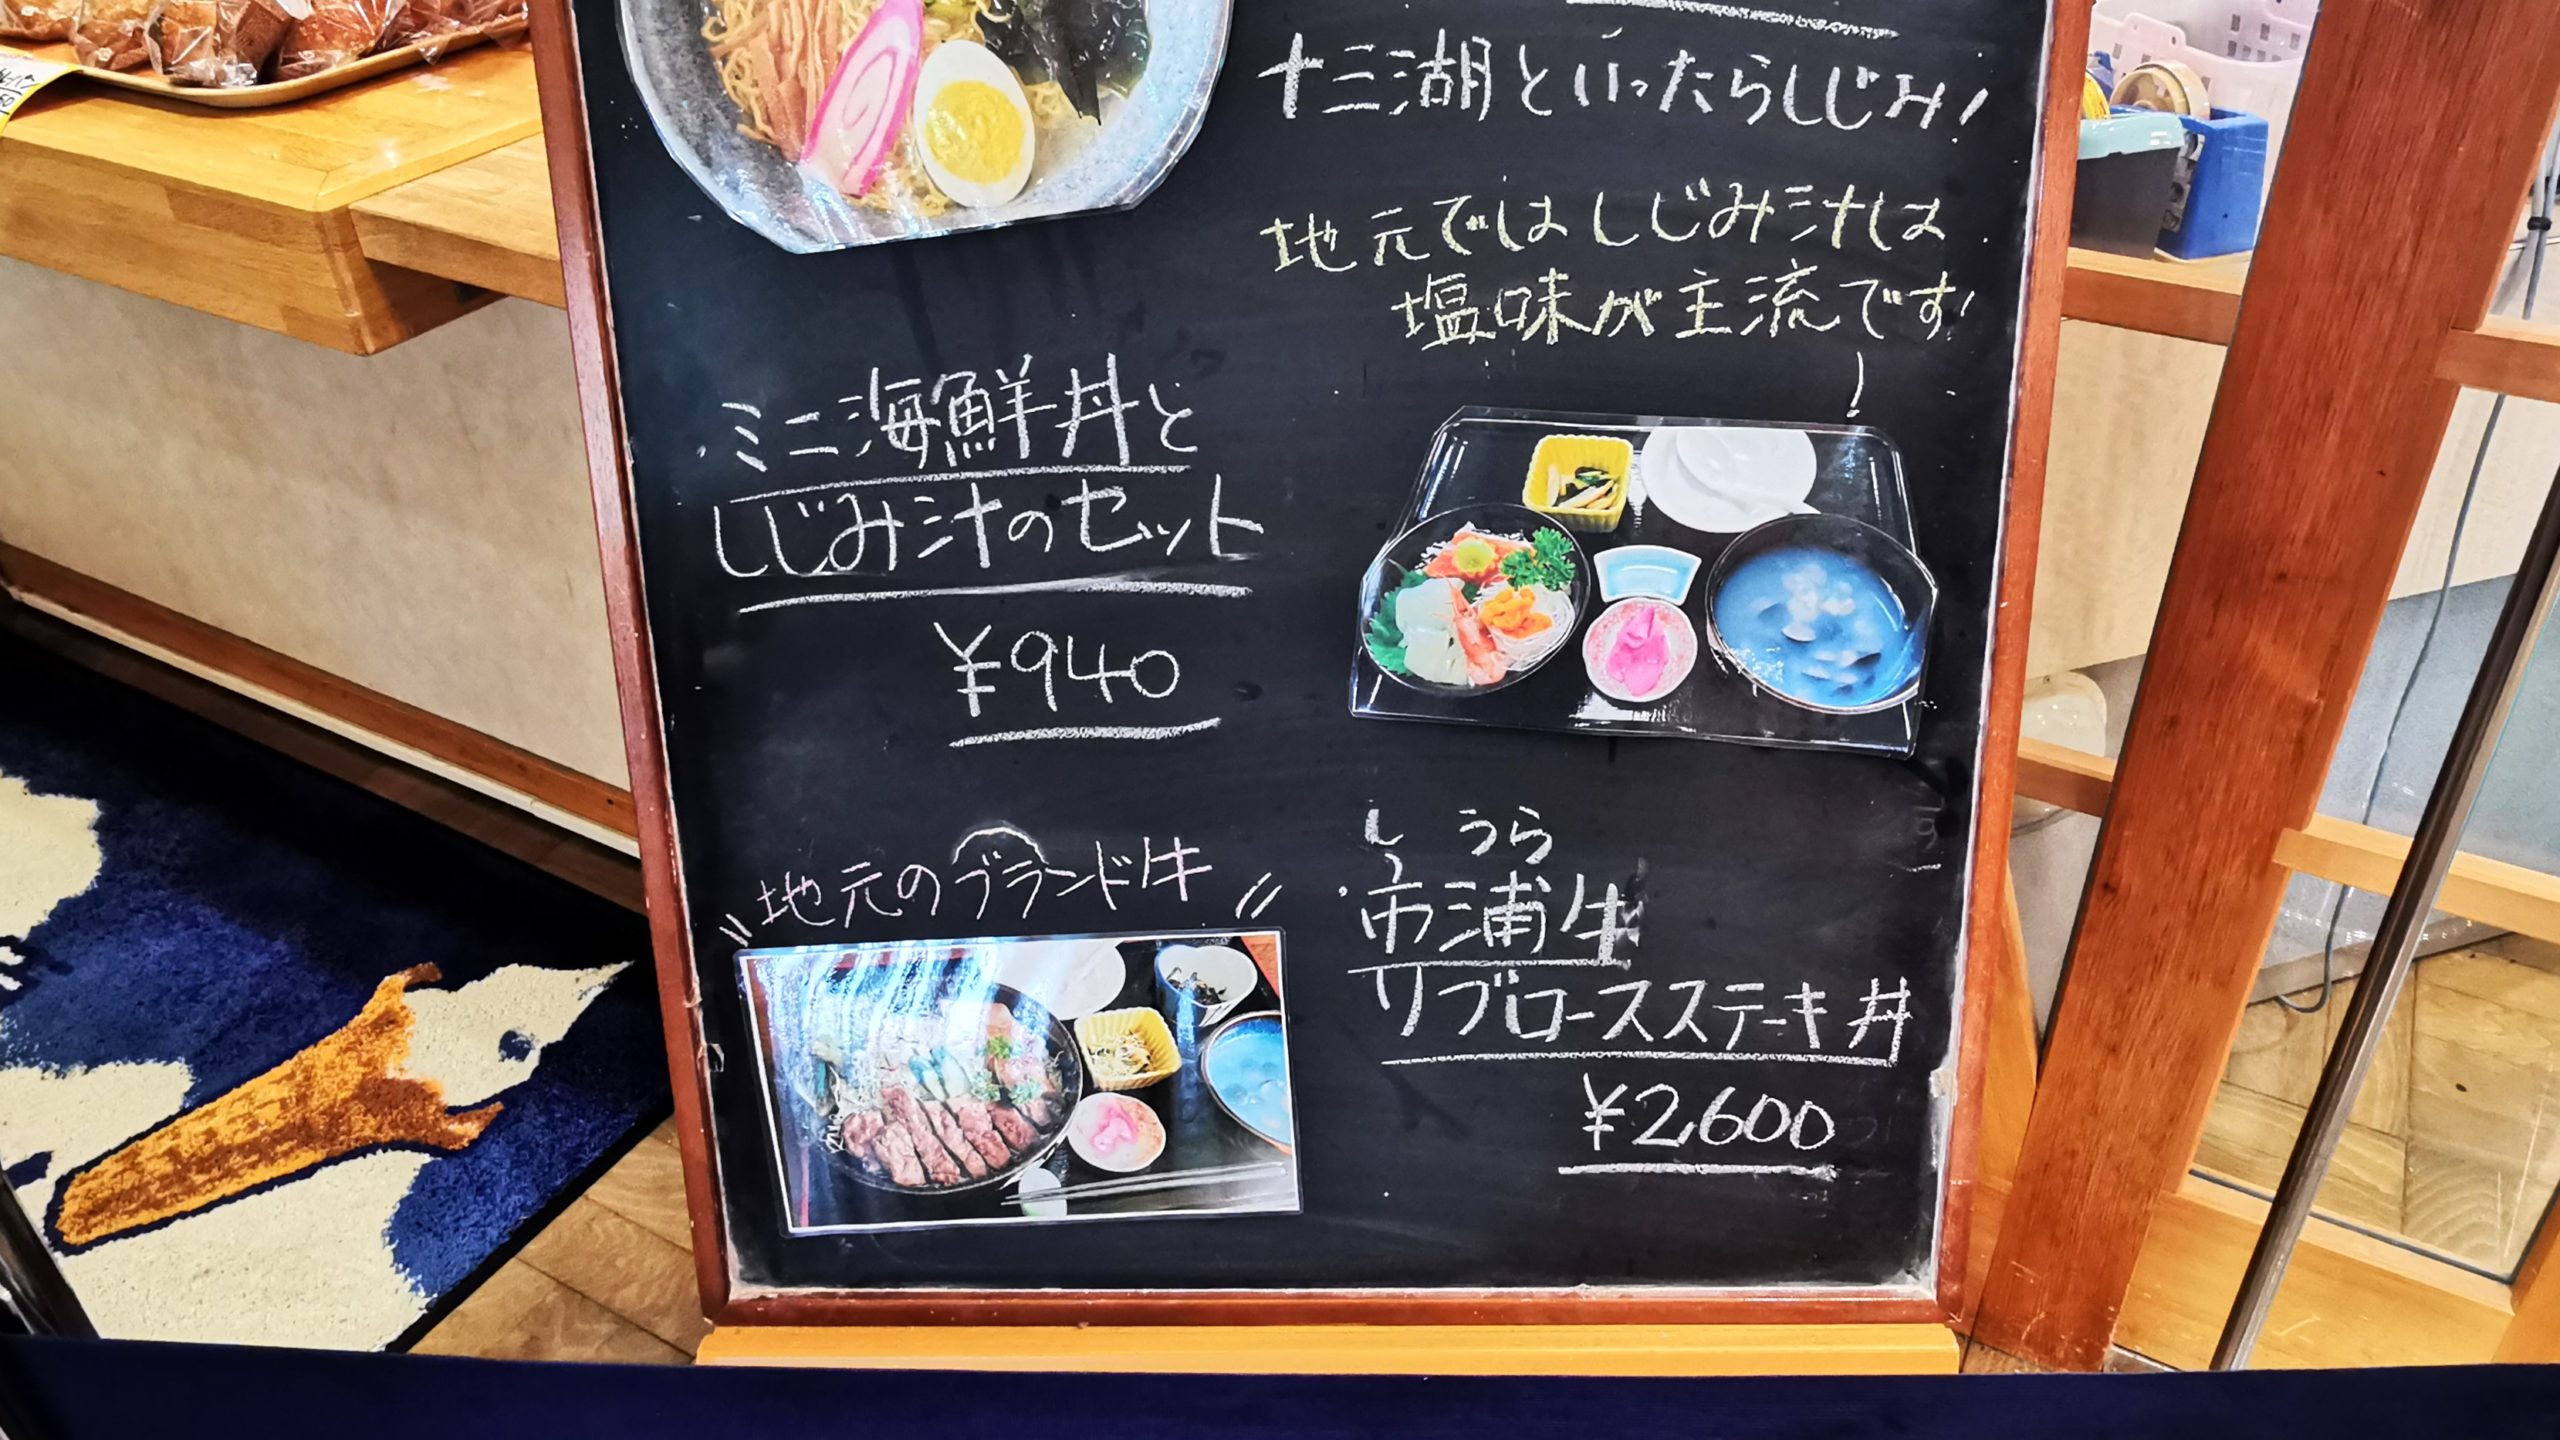 十三湖といったらしじみ!
地元ではしじみ汁は
塩味が主流です!
ミニ海鮮丼と
しじみ汁のセット
¥940
地元のブランド牛
しうら
市浦牛
リブロースステーキ丼
¥2600